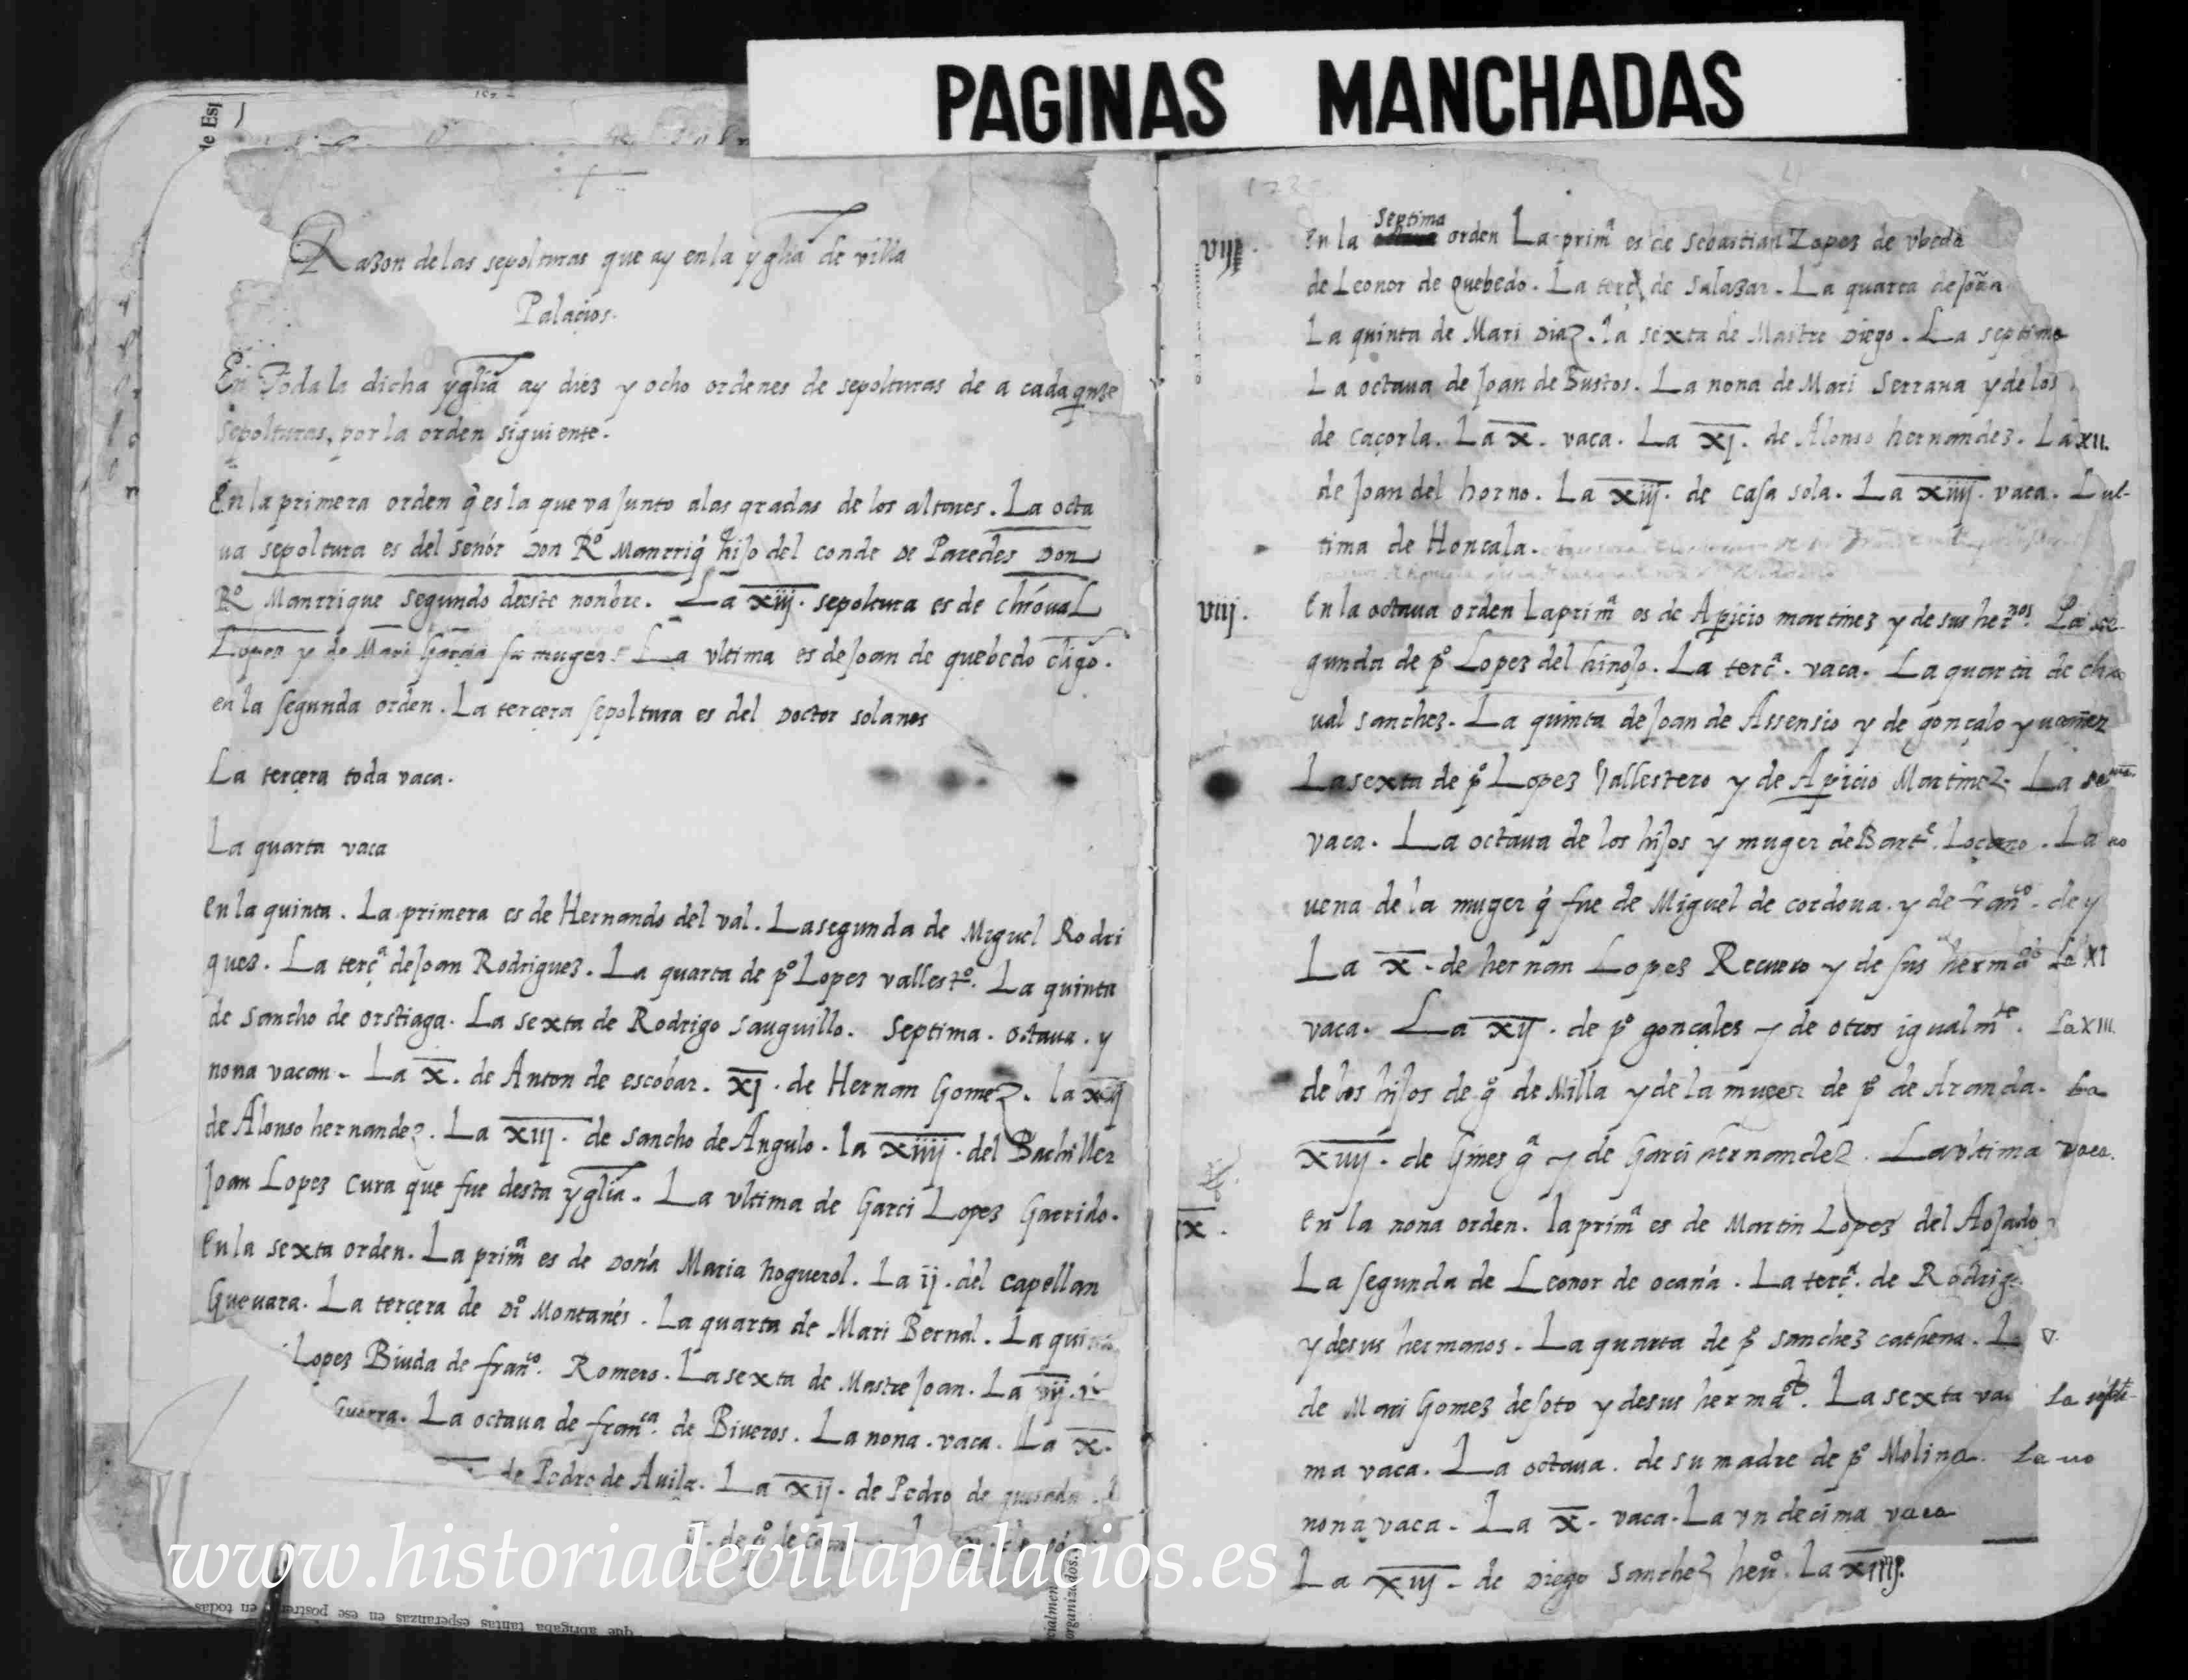 PAGINAS MANCHADAS
de Esp
Razon de las sepolturas que ay en la yglia de villa
Palaçios.
En Toda la dicha yglia ay diez y ocho ordenes de sepolturas de a cada qnze
sepolturas, por la orden siguiente.
En la primera orden q̃ es la que va junto a las gradas de los altares. La octa
ua sepoltura es del señor Don Rº Manrriq̃ hijo del conde de Paredes Don
Rº Manrrique segundo deeste nonbre. La xiij. sepoltura es de chr̃oual
Lopez y de Mari Garcia su muger. La vltima es de Joan de quebedo cligo.
en la segunda orden. La terçera sepoltura es del Doctor solanes
La terçera toda vaca.
La quarta vaca
en la quinta. La primera es de Hernando del val. La segunda de Miguel Rodri
guez. La terçª de Joan Rodriguez. La quarta de pº Lopez vallestº. La quinta
de Sancho de orstiaga. La sexta de Rodrigo sauguillo. Septima. octaua. y
nona vacan. La x. de Anton de escobar. xj. de Hernan Gomez. la xij
de Alonso hernandez. La xiij. de sancho de Angulo. la xiiij. del Bachiller
Joan Lopez Cura que fue desta yglia. La vltima de Garci Lopez Garrido.
en la sexta orden. La primª es de Doña Maria noguerol. La ij. del capellan
Gueuara. La terçera de Diº Montañes. La quarta de Mari Bernal. La quinta
Lopez Biuda de franco. Romero. La sexta de Mastre Joan. La vij.
Guerra. La octaua de franca. de Biueros. La nona. vaca. La x.
de Pedro de Auila. La xij. de Pedro de quesada.
vij.
en la septima orden La primª es de Sebastian Lopez de vbeda
de Leonor de Quebedo. La terçª de Salazar. La quarta de Joãna
La quinta de Mari Diaz. la sexta de Maitre Diego. La septima
La octaua de Joan de Bustos. La nona de Mari Serrana y de los
de Caçorla. La x. vaca. La xj. de Alonso hernandez. La XII.
de Joan del horno. La xiij. de casa sola. La xiiij. vaca. L ul-
tima de Honcala.
viij.
en la octaua orden La primª es de Apicio martinez y de sus hernos. La se-
gunda de pº Lopez del hinojo. La terçª. vaca. La quarta de chr̃o
ual sanchez. La quinta de Joan de Assensio y de gonçalo yuañez
La sexta de pº Lopez Vallestero y de Apicio Martinez. La setma
vaca. La octaua de los hijos y muger de Barte. Loçano. La no
uena de la muger q̃ fue de Miguel de cordoua. y de franco. de y
La x. de hernan Lopez Recuero y de sus hermaos La XI
vaca. La xij. de pº gonçales y de otros igualmte. La XIII.
de los hijos de gº de Milla y de la muger de pº de Aranda. La
xiiij. de Gines gª y de Garci hernandez. La vltima vaca.
ix.
en la nona orden. la primª es de Martin Lopez del Aojado
La segunda de Leonor de ocaña. La terçª. de Rodrig
y de sus hermanos. La quarta de pº sanchez cathena. L V.
de Mari Gomez de soto y de sus hermaos. La sexta vac La septi-
ma vaca. La octaua. de su madre de pº Molina. La no
nona vaca. La x. vaca. La vndecima vaca
La xij. de Diego Sanchez herº. La xiij.
www.historiadevillapalacios.es
que abrigaba tantas esperanzas en ese postrer en todas
cialmen
organizados.